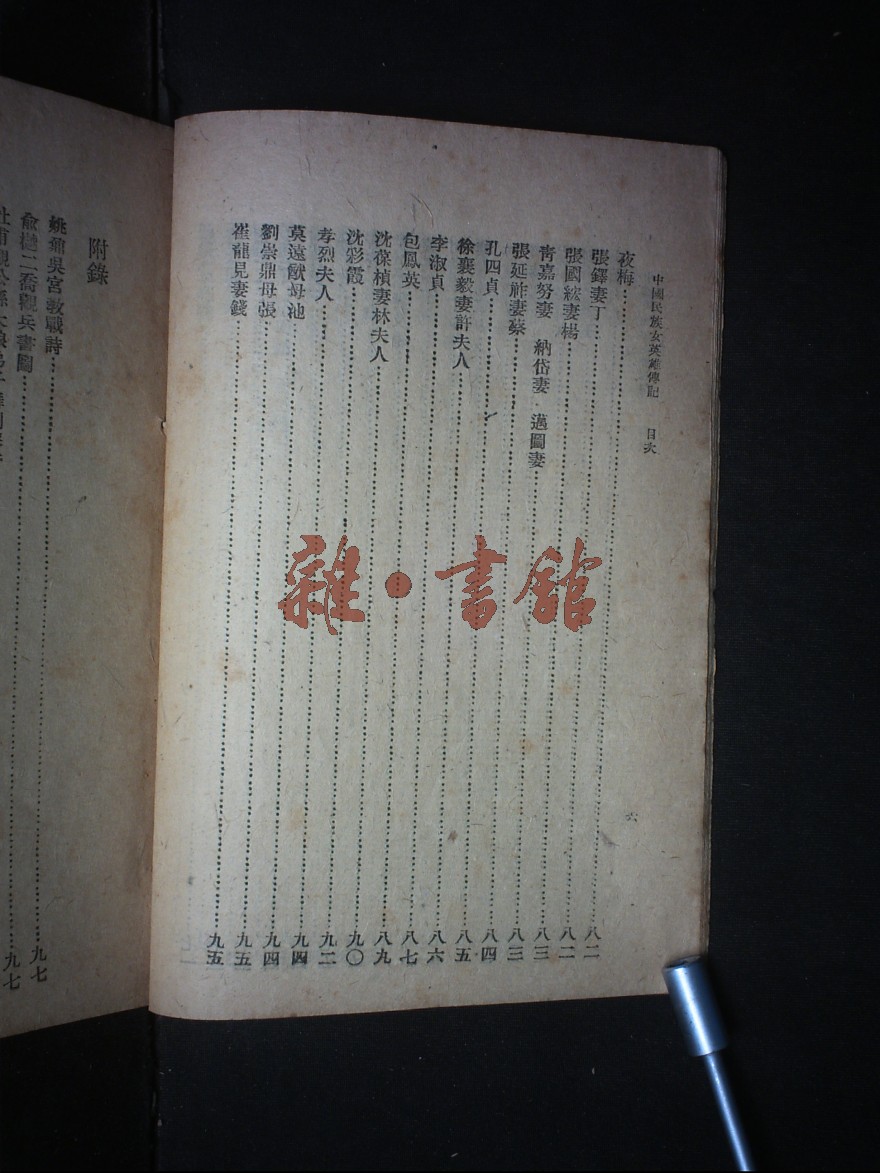 中國民族女英雄傳記 目次
六
夜梅……八二
張鐸妻丁……八二
張國紘妻楊……八三
靑嘉努妻 納岱妻 邁圖妻……八三
張延祚妻蔡……八四
孔四貞……八五
徐襄毅妻許夫人……八六
李淑貞……八七
包鳳英……八九
沈葆楨妻林夫人……九〇
沈彩霞……九二
孝烈夫人……九四
莫遠猷母池……九四
劉崇鼎母張……九五
崔龍見妻錢……九五
附錄
姚鼐吳宮敎戰詩……九七
俞樾二喬觀兵書圖……九七
雜·書館